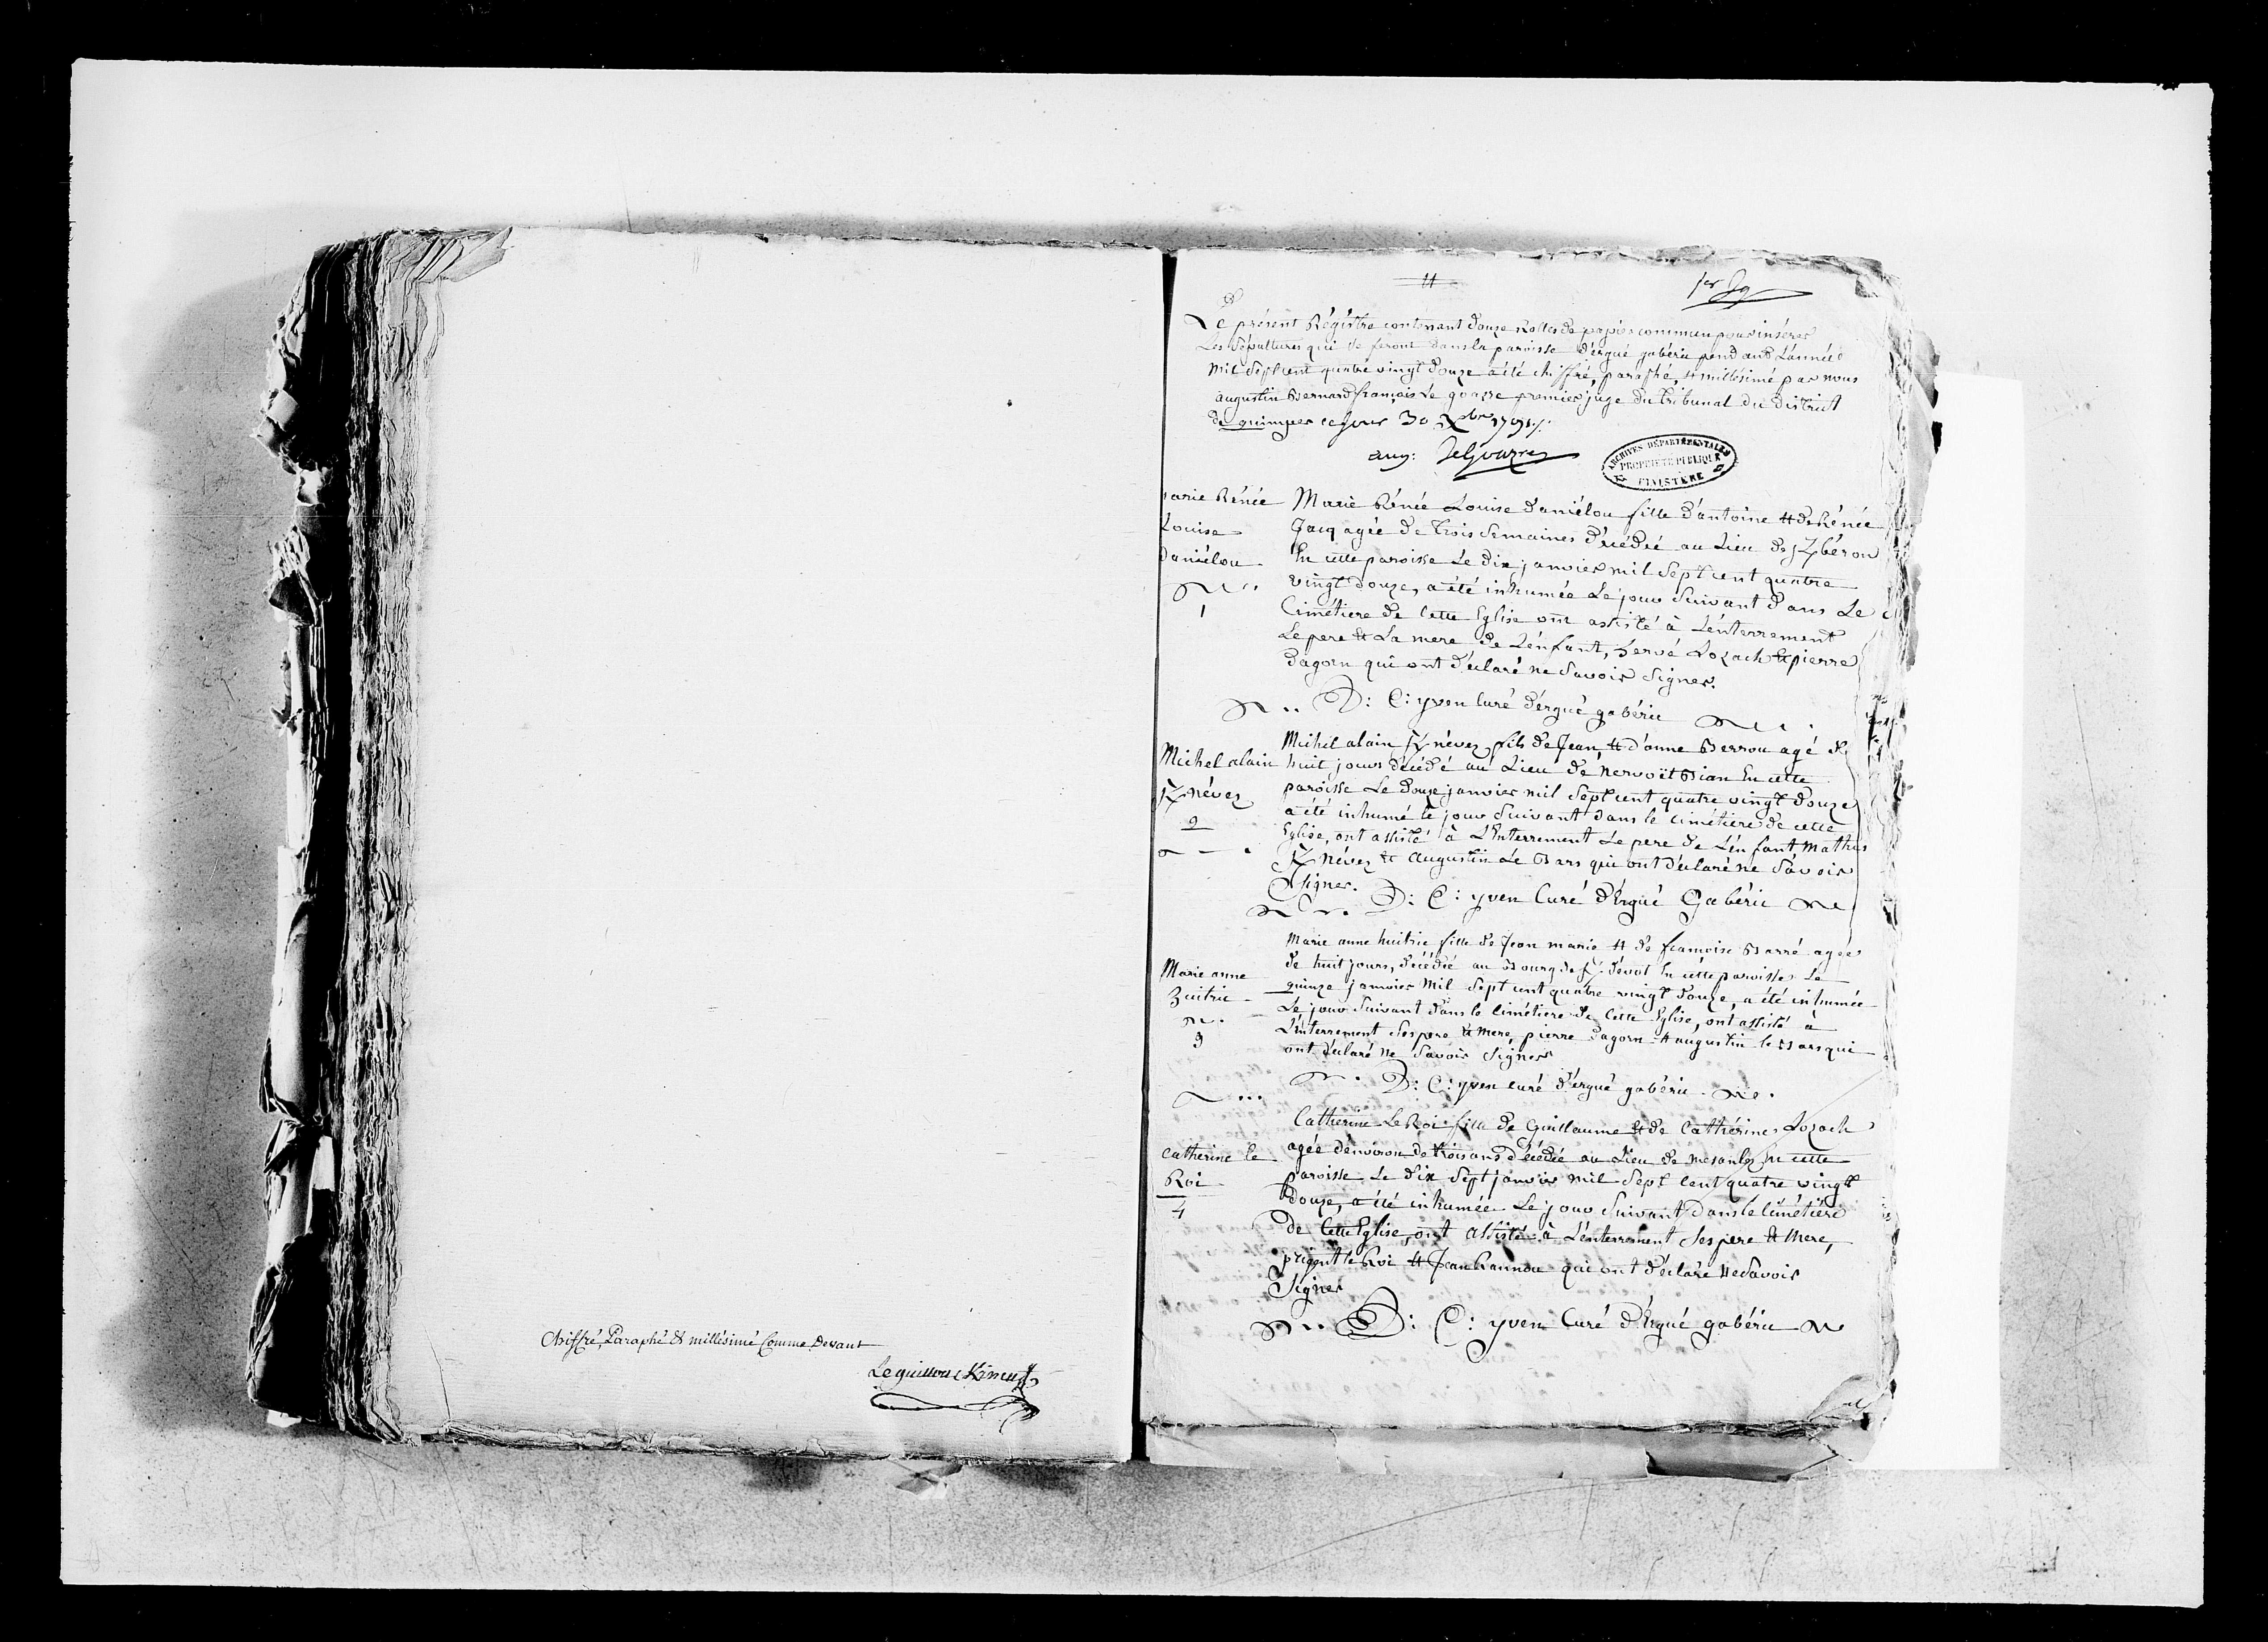 Chiffré, Paraphé & millésimé Comme Devant
Le guillou
1er
Le présent Régistre contenant douze Rolles de papier commun pour insérer
Les sépultures qui se feront dans la paroisse d'ergué gabéric pendant L'année
mil sept cent quatre vingt douze a été chiffré, paraphé, & millésimé par nous
augustin Bernard françois Le goazre premier juge du tribunal du district
de quimper ce jour 30 Xbre 1791 ./.
aug: LeGoazre
ARCHIVES DÉPARTEMENTALES
PROPRIÉTÉ PUBLIQUE
FINISTÈRE
arie Rénée
Louise
Daniélou
1
Marie Rénée Louise Daniélou fille d'antoine & de Rénée
Jacq agée de trois semaines décédée au Lieu de
En cette paroisse Le dix janvier mil sept cent quatre
vingt douze, a été inhumée Le jour suivant dans Le
Cimétiere de Cette Eglise ont assisté à L'énterrement
Le pere & La mere de L'énfant, hervé Lozach & pierre
dagorn qui ont déclaré ne savoir signer.
D: C: yven Curé d'ergué gabéric
Michel alain
Kznévez
2
Michel alain Kznévez fils de Jean & d'anne Berrou agé de
huit jours décédé au Lieu de Bian En cette
paroisse Le douze janvier mil sept cent quatre vingt douze
a été inhumé le jour suivant dans le cimétiere de cette
Eglise, ont assisté à L'Enterrement Le pere de L'énfant
Kznévez & augustin Le Bars qui ont déclaré ne savoir
signer.
D: C: yven Curé d'Ergué Gabéric
Marie anne
huitric
3
Marie anne huitric fille de Jean marie & de francoise Barré agée
de huit jours, décédée au Bourg de En cette paroisse Le
quinze janvier mil sept cent quatre vingt douze, a été inhumée
Le jour suivant dans le Cimétiere de Cette Eglise, ont assisté à
L'énterrement ses pere & mere, pierre dagorn & augustin le Bars qui
ont déclaré ne savoir signer
D: C: yven curé d'ergué gabéric
Catherine le
Roi
4
Catherine Le Roi fille de Guillaume & de Catherine Lozach
agée d'environ de trois ans décédée au Lieu de En cette
paroisse Le dix sept janvier mil sept cent quatre vingt
douze, a été inhumée Le jour suivant dans le Cimétiére
de Cette Eglise, ont assisté à L'énterrement ses pere & mere,
prigent le Roi & Jean Rannou qui ont déclaré ne savoir
Signer
D: C: yven Curé d'Ergué gabéric